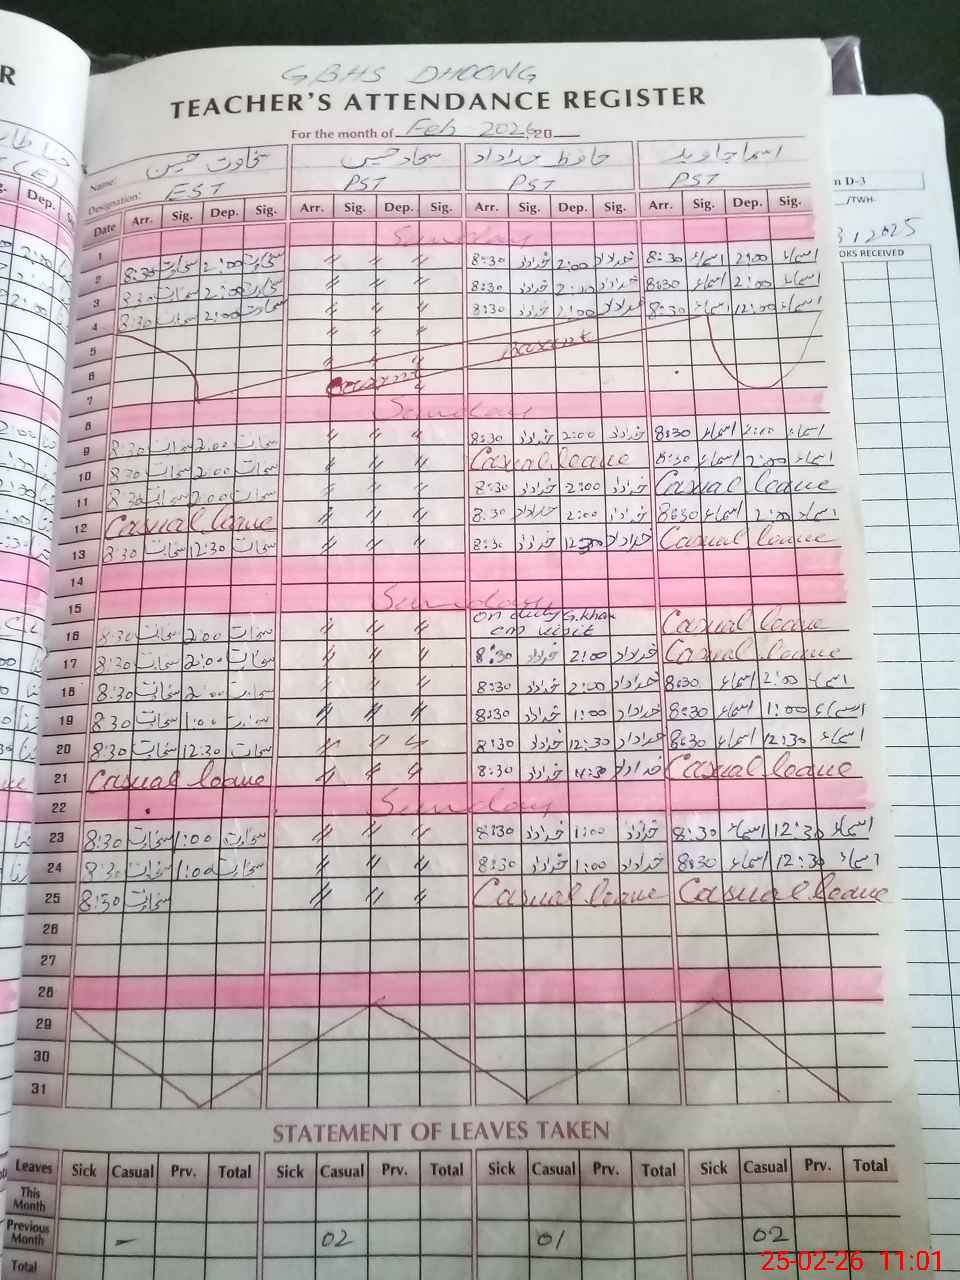 GBHS DHOONG
TEACHER'S ATTENDANCE REGISTER
For the month of Feb 2026, 20
Name: سخاوت حسین سجاد حسین حافظ خداداد اسما جاوید
Designation: EST PST PST PST
Date Arr. Sig. Dep. Sig. Arr. Sig. Dep. Sig. Arr. Sig. Dep. Sig. Arr. Sig. Dep. Sig.
1 Sunday
2 8:30 سخاوت 2:00 سخاوت 〃 〃 〃 8:30 خداداد 2:00 خداداد 8:30 اسماء 2:00 اسماء
3 8:30 سخاوت 2:00 سخاوت 〃 〃 〃 8:30 خداداد 2:00 خداداد 8:30 اسماء 2:00 اسماء
4 8:30 سخاوت 2:00 سخاوت 〃 〃 〃 8:30 خداداد 2:00 خداداد 8:30 اسماء 12:00 اسماء
5 〃 〃 〃
6 〃 〃 〃
7
8 Sunday
9 8:30 سخاوت 2:00 سخاوت 〃 〃 〃 8:30 خداداد 2:00 خداداد 8:30 اسماء 2:00 اسماء
10 8:30 سخاوت 2:00 سخاوت 〃 〃 〃 Casual leave 8:30 اسماء 2:00 اسماء
11 8:30 سخاوت 2:00 سخاوت 〃 〃 〃 8:30 خداداد 2:00 خداداد Casual leave
12 Casual leave 〃 〃 〃 8:30 خداداد 2:00 خداداد 8:30 اسماء 2:00 اسماء
13 8:30 سخاوت 12:30 سخاوت 〃 〃 〃 8:30 خداداد 12:30 خداداد Casual leave
14
15 Sunday
16 8:30 سخاوت 2:00 سخاوت 〃 〃 〃 on duty G.khan cm visit Casual leave
17 8:30 سخاوت 2:00 سخاوت 〃 〃 〃 8:30 خداداد 2:00 خداداد Casual leave
18 8:30 سخاوت 2:00 سخاوت 〃 〃 〃 8:30 خداداد 2:00 خداداد 8:30 اسماء 2:00 اسماء
19 8:30 سخاوت 1:00 سخاوت 〃 〃 〃 8:30 خداداد 1:00 خداداد 8:30 اسماء 1:00 اسماء
20 8:30 سخاوت 12:30 سخاوت 〃 〃 〃 8:30 خداداد 12:30 خداداد 8:30 اسماء 12:30 اسماء
21 Casual leave 〃 〃 〃 8:30 خداداد خداداد Casual leave
22 Sunday
23 8:30 سخاوت 1:00 سخاوت 〃 〃 〃 8:30 خداداد 1:00 خداداد 8:30 اسماء 12:30 اسماء
24 8:30 سخاوت 1:00 سخاوت 〃 〃 〃 8:30 خداداد 1:00 خداداد 8:30 اسماء 12:30 اسماء
25 8:30 سخاوت 〃 〃 〃 Casual leave Casual leave
26
27
28
29
30
31
STATEMENT OF LEAVES TAKEN
Leaves Sick Casual Prv. Total Sick Casual Prv. Total Sick Casual Prv. Total Sick Casual Prv. Total
This Month
Previous Month – 02 01 02
Total
R
(E)
Dep.
D-3
/TWH-
2025
OKS RECEIVED
25-02-26 11:01